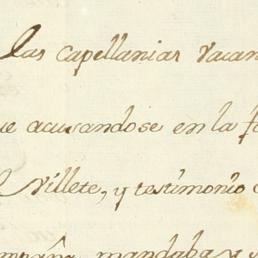 las capellanias vacan
ue acusandose en la f
l Villete, y testimonio
ompáñ mandaba y